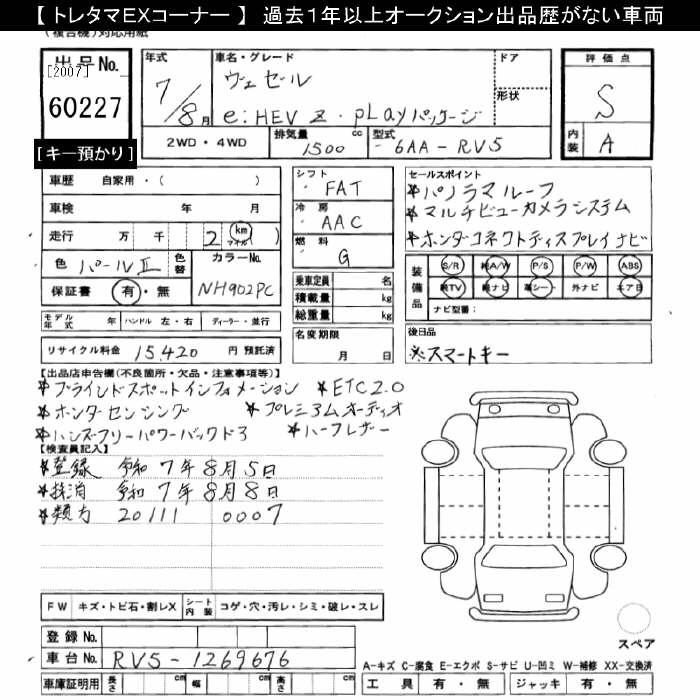 【 トレタマEXコーナー 】 過去1年以上オークション出品歴がない車両
(複合機)対応用紙
出品No. [2007] 60227
[キー預かり]
年式 7/8月
車名・グレード ヴェゼル
e:HEV Z・PLayパッケージ
ドア
形状
評価点 S
内装 A
2WD・4WD 排気量 1500 cc 型式 6AA-RV5
車歴 自家用・( )
車検 年 月
走行 万 千 2 (km マイル)
色 パールII 色替 カラーNo. NH902PC
保証書 有・無
モデル年式 年 ハンドル 左・右 ディーラー・並行
リサイクル料金 15,420 円 預託済
シフト FAT
冷房 AAC
燃料 G
乗車定員 名
積載量 kg
総重量 kg
名変期限 月 日
セールスポイント
*パノラマルーフ
*マルチビューカメラシステム
*ホンダコネクトディスプレイナビ
装備品 S/R 純A/W P/S P/W ABS
純TV 純ナビ 革シート 外ナビ エアB
ナビ型番:
後日品
※スマートキー
【出品店申告欄(不良箇所・欠品・注意事項等)】
*ブラインドスポットインフォメーション *ETC2.0
*ホンダセンシング *プレミアムオーディオ
*ハンズフリーパワーバックドア *ハーフレザー
【検査員記入】
*登録 令和7年8月5日
*抹消 令和7年8月8日
*類方 20111 0007
FW キズ・トビ石・割レX シート内装 コゲ・穴・汚レ・シミ・破レ・スレ
登録No.
車台No. RV5-1269676
車庫証明用 長さ cm 幅 cm 高さ cm
スペア
A-キズ C-腐食 E-エクボ S-サビ U-凹ミ W-補修 XX-交換済
工具 有・無 ジャッキ 有・無